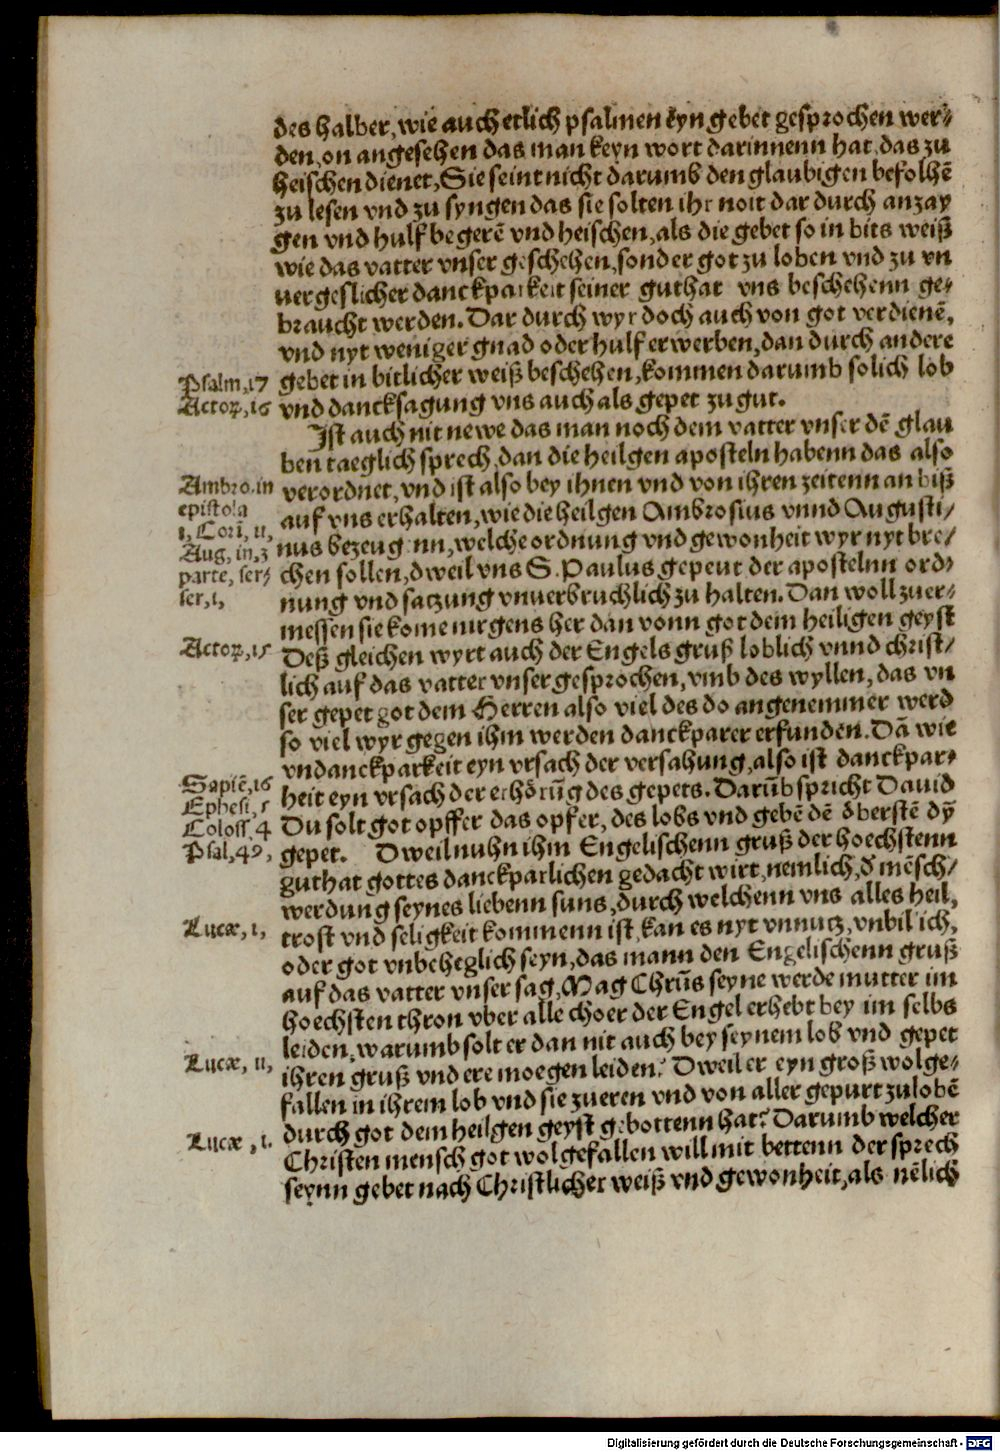 des halber, wie auch etlich psalmen eyn gebet gesprochen wer/
den, on angesehen das man keyn wort darinnenn hat, das zu
heischen dienet, Sie seint nicht darumb den glaubigen befolhē
zu lesen vnd zu syngen das sie solten ihr noit dar durch anzay
gen vnd hulf begerē vnd heischen, als die gebet so in bits weiß
wie das vatter vnser geschehen, sonder got zu loben vnd zu vn
uergeslicher danckparkeit seiner guthat vns beschehenn ge/
braucht werden. Dar durch wyr doch auch von got verdienē,
vnd nyt weniger gnad oder hulf erwerben, dan durch andere
Psalm, 17
gebet in bitlicher weiß beschehen, kommen darumb solich lob
Actoꝝ, 16
vnd dancksagung vns auch als gepet zu gut.
Ist auch nit newe das man noch dem vatter vnser dē glau
ben taeglich sprech, dan die heilgen aposteln habenn das also
Ambro, in
verordnet, vnd ist also bey ihnen vnd von ihren zeitenn an biß
epistola
auf vns erhalten, wie die heilgen Ambrosius vnnd Augusti/
1, Cori, 11,
Aug, in, 3
nus bezeug nn, welche ordnung vnd gewonheit wyr nyt bre/
parte, ser/
chen sollen, dweil vns S. Paulus gepeut der apostelnn ord/
ser, 1,
nung vnd satzung vnuerbruchlich zu halten. Dan woll zuer/
messen sie kome nirgens her dan vonn got dem heiligen geyst
Actoꝝ, 15
Deß gleichen wyrt auch der Engels gruß loblich vnnd christ/
lich auf das vatter vnser gesprochen, vmb des wyllen, das vn
ser gepet got dem Herren also viel des do angenemmer werd
so viel wyr gegen ihm werden danckparer erfunden. Dā wie
vndanckparkeit eyn vrsach der versahung, also ist danckpar/
Sapiē, 16
heit eyn vrsach der erhörūg des gepets. Darūb spricht Dauid
Ephesi, 5
Coloss, 4
Du solt got opffer das opfer, des lobs vnd gebē dē öberstē dȳ
Psal, 49,
gepet. Dweil nuhn ihm Engelischenn gruß der hoechstenn
guthat gottes danckparlichen gedacht wirt, nemlich, ď mēsch/
werdung seynes liebenn suns, durch welchenn vns alles heil,
Lucæ, 1,
trost vnd seligkeit kommenn ist, kan es nyt vnnutz, vnbil ich,
oder got vnbeheglich seyn, das mann den Engelischenn gruß
auf das vatter vnser sag, Mag Chrūs seyne werde mutter im
hoechsten thron vber alle choer der Engel erhebt bey im selbs
leiden, warumb solt er dan nit auch bey seynem lob vnd gepet
Lucæ, 11,
ihren gruß vnd ere moegen leiden? Dweil er eyn groß wolge/
fallen in ihrem lob vnd sie zueren vnd von aller gepurt zulobē
Lucæ, 1.
durch got dem heilgen geyst gebottenn hat? Darumb welcher
Christen mensch got wolgefallen will mit bettenn der sprech
seynn gebet nach Christlicher weiß vnd gewonheit, als nēlich
Digitalisierung gefördert durch die Deutsche Forschungsgemeinschaft - DFG